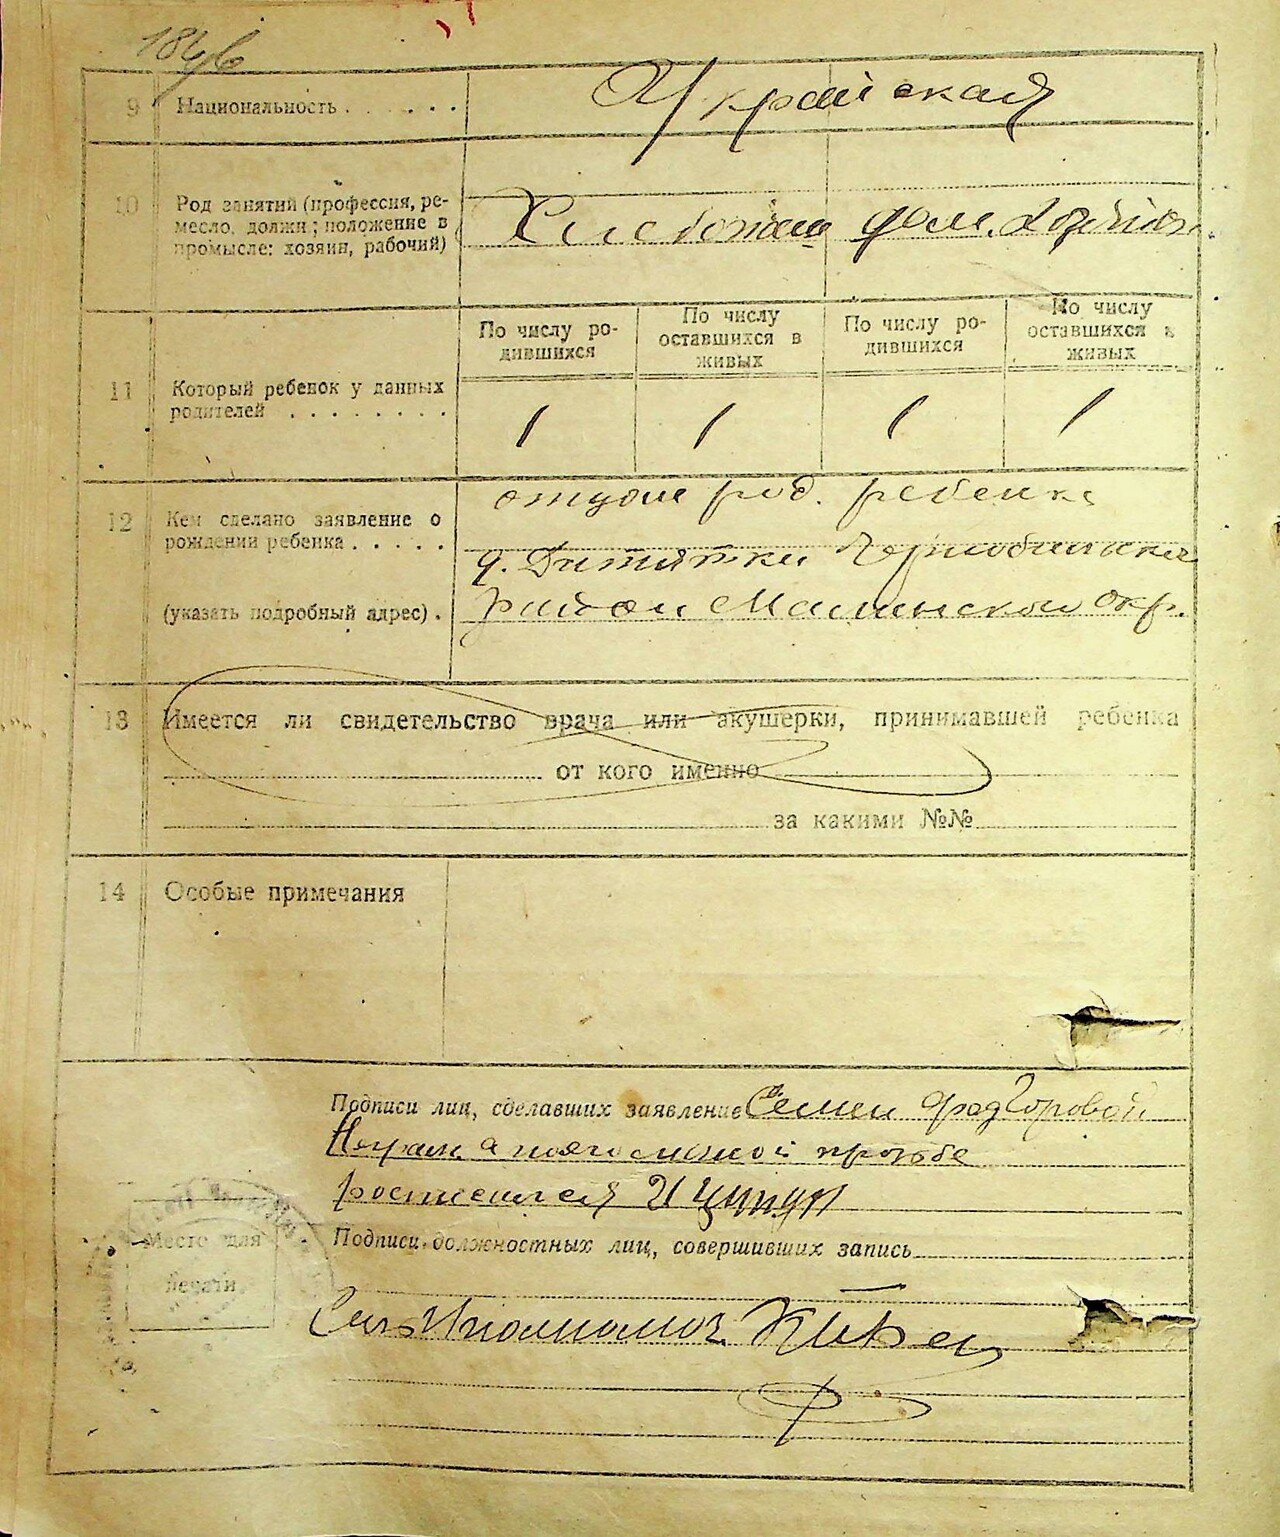 184/6
9 Национальность . . . . . . Украиская
10 Род занятий (профессия, ре-
месло, должн; положение в
промысле: хозяин, рабочий)
Хлебопаш дом.
11 Который ребенок у данных
родителей . . . . . . . .
По числу ро-
дившихся
По числу
оставшихся в
живых
По числу ро-
дившихся
По числу
оставшихся в
живых
1 1 1 1
12 Кем сделано заявление о
рождении ребенка . . . . .
(указать подробный адрес) .
отцом род. ребенка
д. Дитятки Чернобильска
район Малинской окр.
13 Имеется ли свидетельство врача или акушерки, принимавшей ребенка
от кого именно
за какими №№
14 Особые примечания
Подписи лиц, сделавших заявление Семен
Неграм. а по его личной прозьбе
Подписи должностных лиц, совершивших запись
Место для
печати